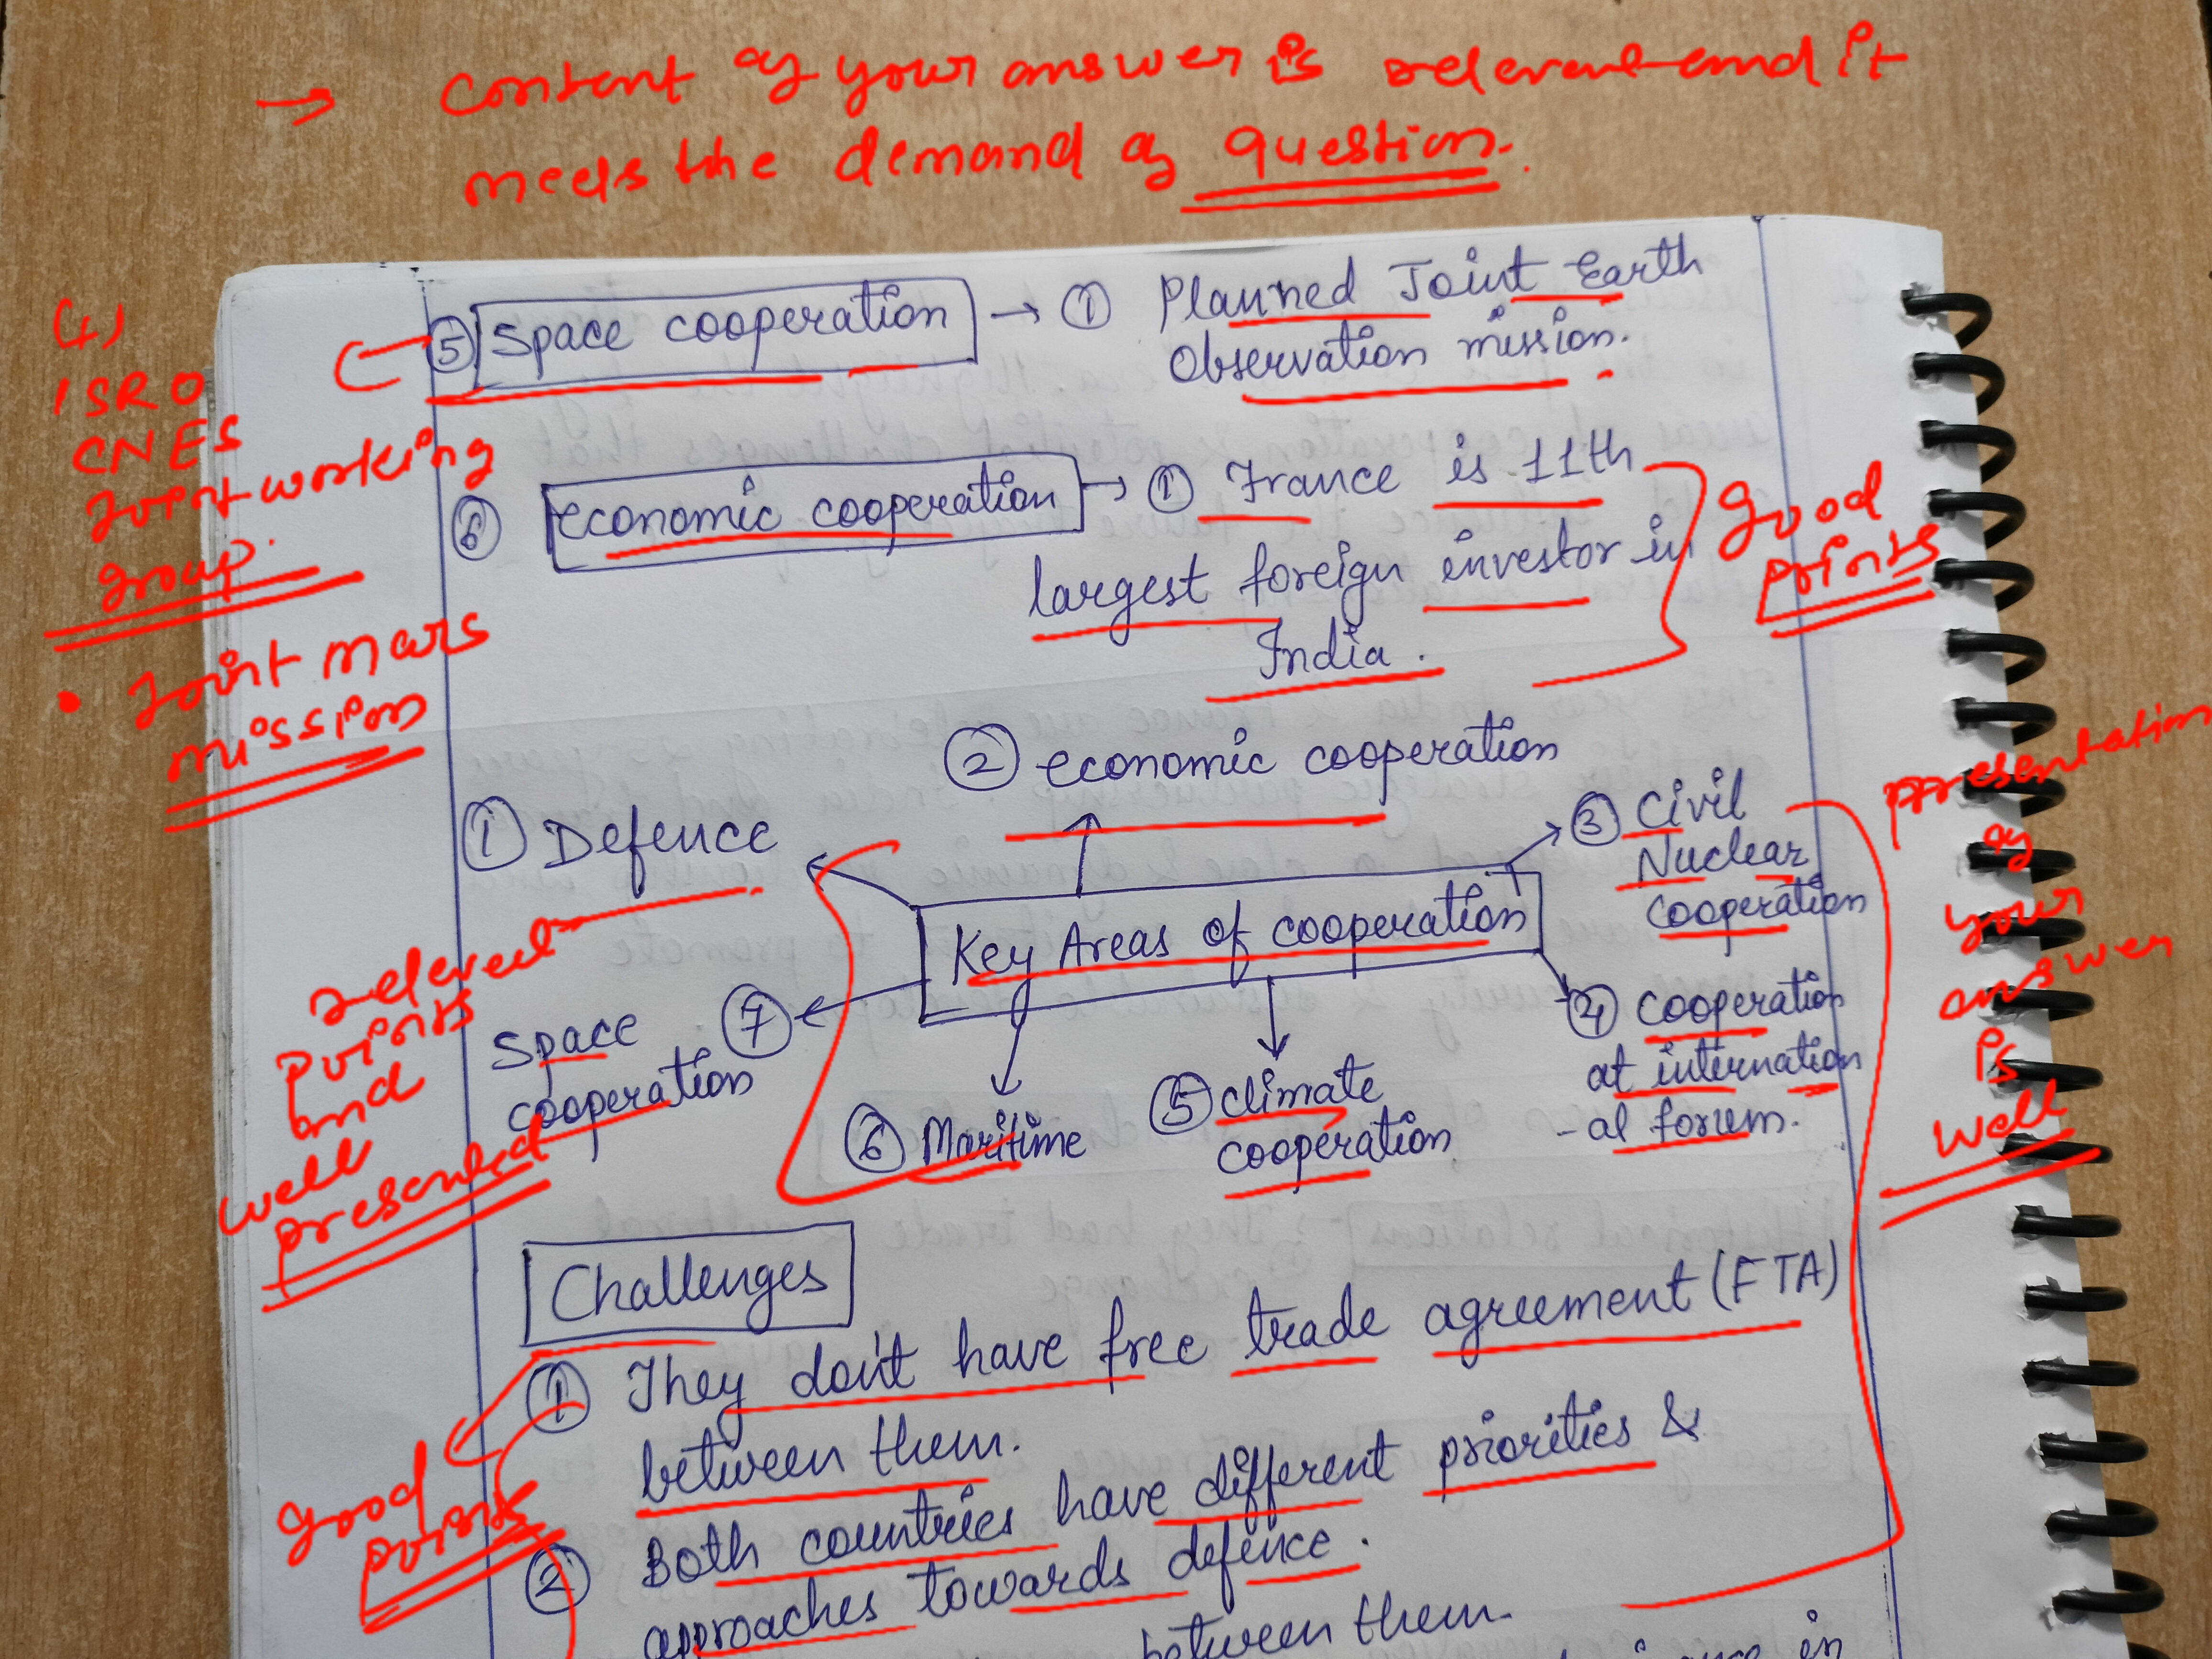 → Content of your answer is relevant and it
meets the demand of question.
(4)
ISRO
CNES
Joint working
group.
• Joint mars
mission
⑤ Space cooperation → ① Planned Joint Earth
Observation mission.
⑥ economic cooperation → ① France is 11th
largest foreign investor in
India.
Good
points
② economic cooperation
① Defence
③ Civil
Nuclear
cooperation
Key Areas of cooperation
④ cooperation
at internation
-al forum.
Space ⑦
cooperation
⑥ Maritime
⑤ climate
cooperation
relevant
points
and
well
presented
presentation
of
your
answer
is
well
Challenges
① They don't have free trade agreement (FTA)
between them.
② Both countries have different priorities &
approaches towards defence.
Good
points
between them.
in